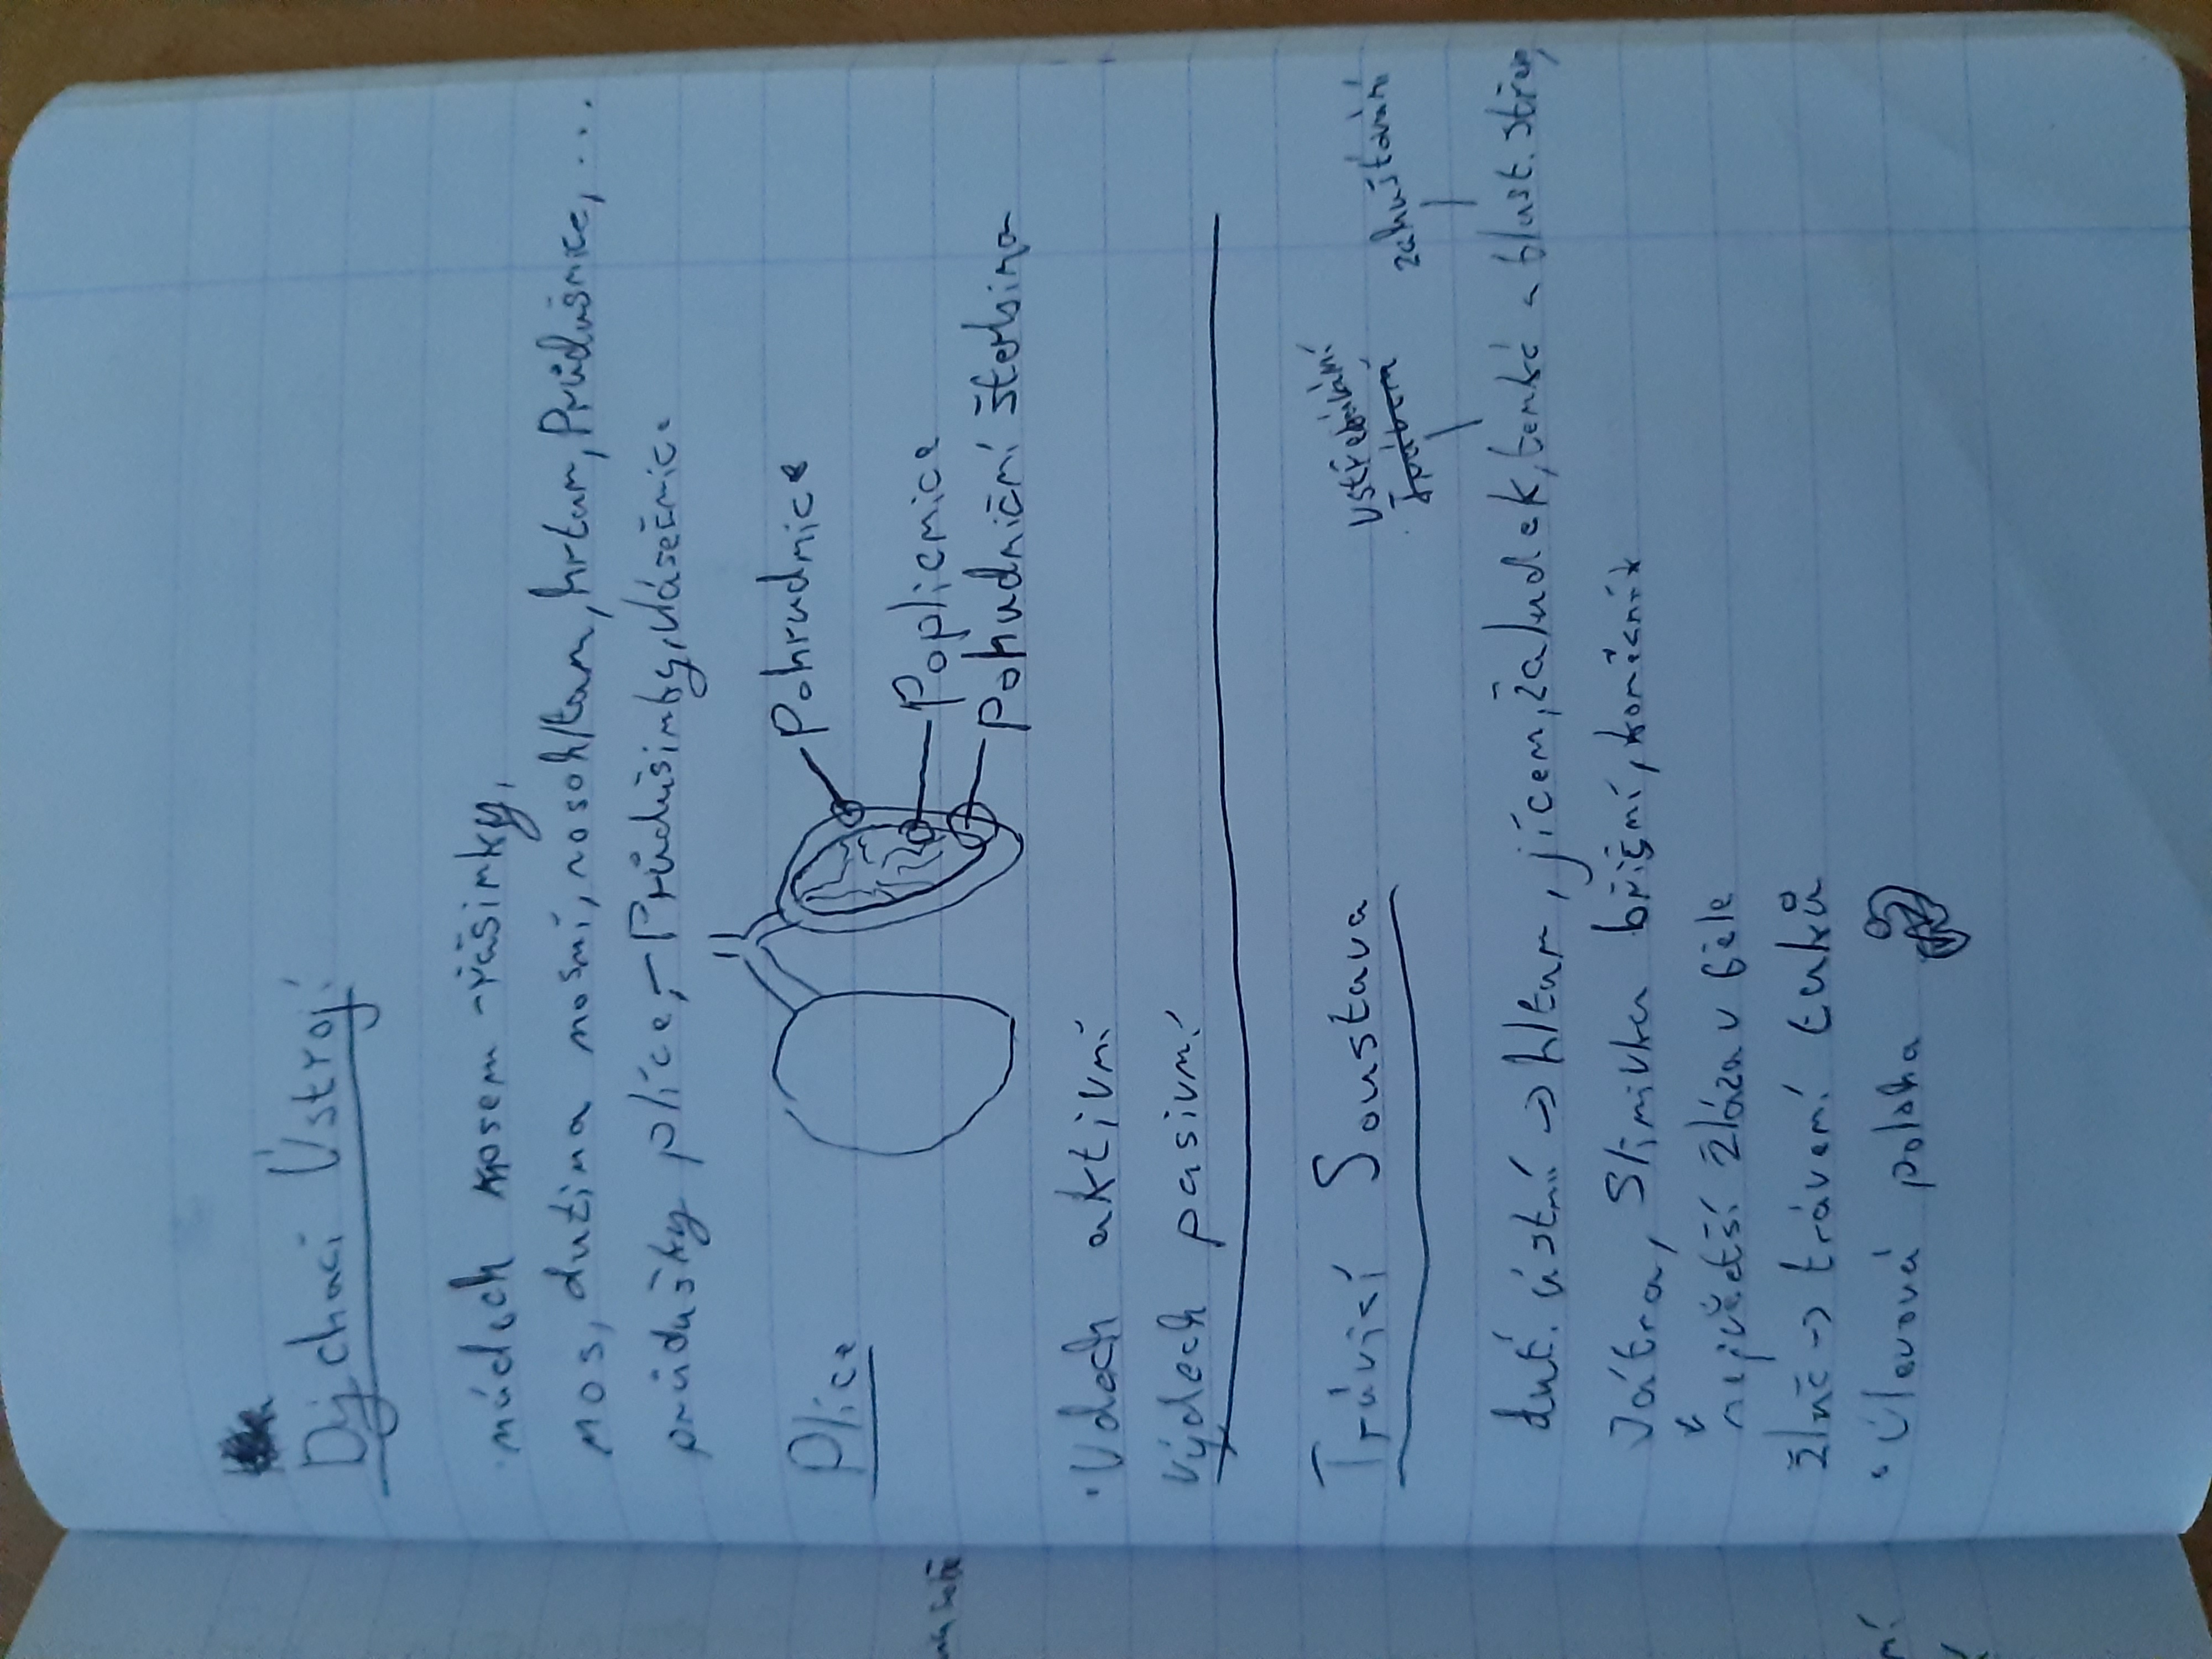 Dýchací Ústrojí
·nádech nosem - řasinky,
nos, dutina nosní, nosohltan, hrtan, Průdušnice, ...
průdušky plíce, - Průdušinky, vlásečnice
Plíce
Pohrudnice
Poplicnice
Pohudniční šterbina
·Vdech aktivní
Výdech pasivní
Trávicí Soustava
vstřebávání
zahušťování
dut. ústní -> hltan, jícen, žaludek, tenké a tlust. střevo,
Játra, Slinivka břišní, konečník
největší žláza v těle
žluč -> trávení tuků
· úlevová poloha